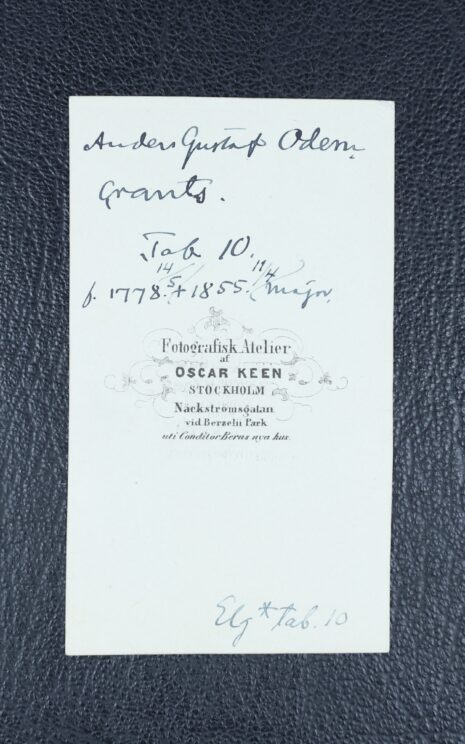 Anders Gustaf Odem
grants.
Tab 10.
f. 1778. 14/5 † 1855. 19/4 major.
Fotografisk Atelier
af
OSCAR KEEN
STOCKHOLM
Näckströmsgatan
vid Berzelii Park
uti Conditor Berns nya hus.
Elg* tab. 10